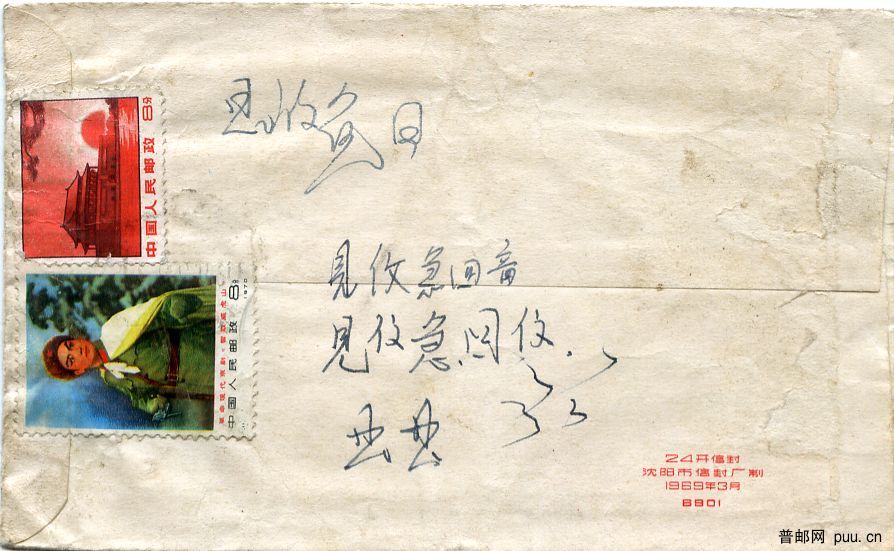 8分
中国人民邮政
8分
1970
中国人民邮政
革命现代京剧《智取威虎山》
見攸急回音
見攸急回攸
24开信封
沈阳市信封厂制
1969年3月
8801
普邮网 puu.cn